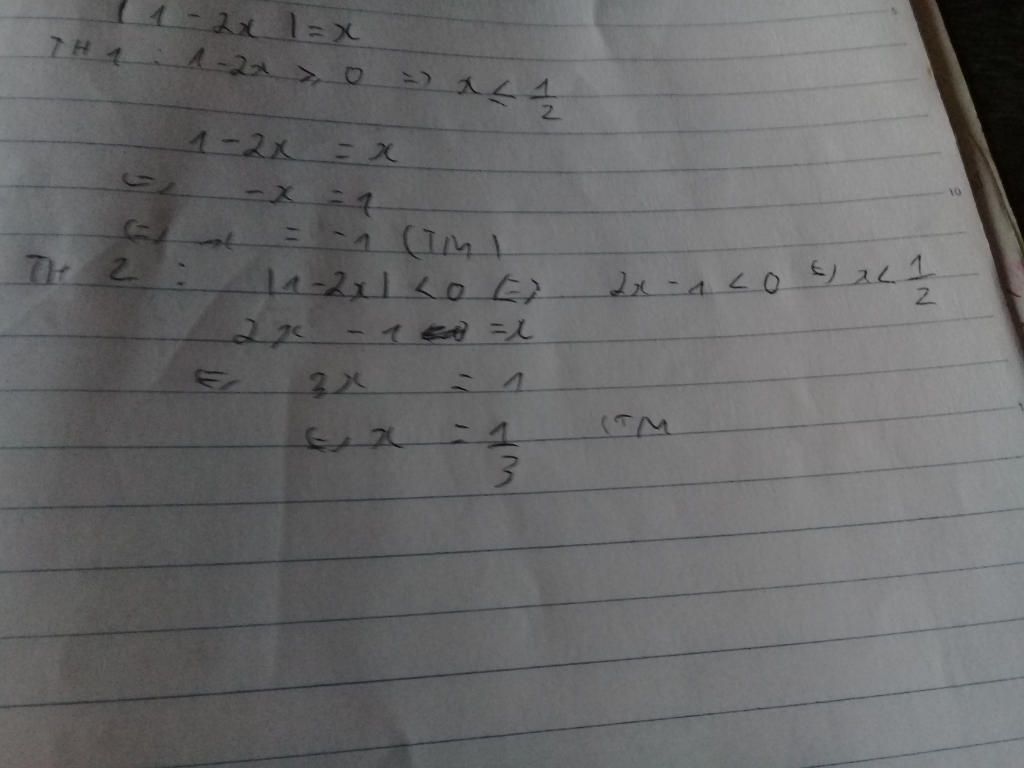 | 1 - 2x | = x
TH 1 : 1 - 2x ≥ 0 => x ≤ 1/2
1 - 2x = x
<=> -x = 1
<=> x = -1 (TM)
TH 2 : |1 - 2x| < 0 <=> 2x - 1 < 0 <=> x < 1/2
2x - 1 = x
<=> 3x = 1
<=> x = 1/3 (TM